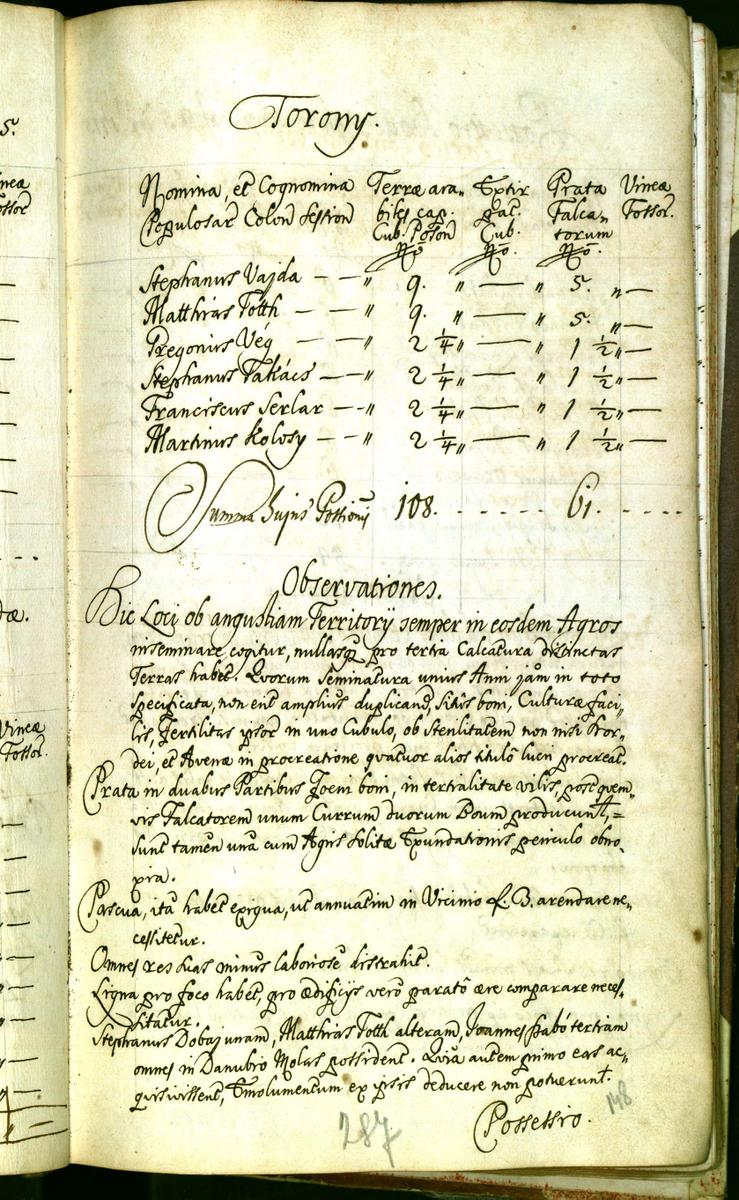 Torony.
Nomina, et Cognomina Terræ ara- Extir Prata Vineæ
Populosar Colon Session biles cap. pat. Falca- Fossor.
Cub. Poson Cub. torum
No No. No.
Stephanus Vajda — — " 9. " — " 5. " —
Matthias Tótth — — " 9. " — " 5. " —
Gregorius Vég — — " 2 1/4 " — " 1 1/2 " —
Stephanus Takács — — " 2 1/4 " — " 1 1/2 " —
Franciscus Serlar — — " 2 1/4 " — " 1 1/2 " —
Martinus Kolosy — — " 2 1/4 " — " 1 1/2 " —
Summa hujus Possionis 108. - - - - - 61. - - - -
Observationes.
Hic Loci ob angustiam Territorÿ semper in eosdem Agros
inseminare cogitur, nullasq pro tertia Calcatura distinctas
Terras habet. Quorum seminatura unius Anni jam in toto
specificata, non erit amplius duplicand, sitûs boni, Culturæ faci-
lis, Fertilitas ipsor in uno Cubulo, ob sterilitatem non nisi Hor-
dei, et Avenæ in procreatione quatuor alios titulô lucri procreat.
Prata in duabus Partibus Foeni boni, in tertialitate vilis, quem-
vis Falcatorem unum Currum duorum Boum producunt,
sunt tamen unà cum Agris solitæ Exundationis periculo obno-
xia.
Pascua, ità habet exigua, ut annuatim in Vicinio f. B. arendare ne-
cessitetur.
Omnes res suas minùs laboriosè distrahit.
Ligna pro foco habet, pro ædificÿs verò paratô ære comparare neces-
sitatur.
Stephanus Dobaj unam, Matthias Totth alteram, Joannes Szabó tertiam
omnes in Danubio Molas possident. Quia autem primo eas ac-
quisivissent, Emolumentum ex ipsis deducere non potuerunt.
Possessio.
148
287